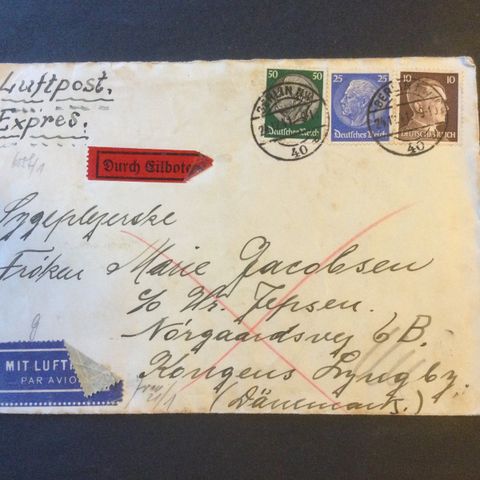 Luftpost.
Expres.
50 50
Deutsches Reich
25 25
Deutsches Reich
10 10
DEUTSCHES REICH
BERLIN
40
BERLIN
40
Durch Eilboten
Sygeplejerske
Frøken Marie Jacobsen
c/o Hr. Jepsen.
Nørgaardsvej 6B.
Kongens Lyngby.
(Dänemark.)
MIT LUFT
PAR AVION